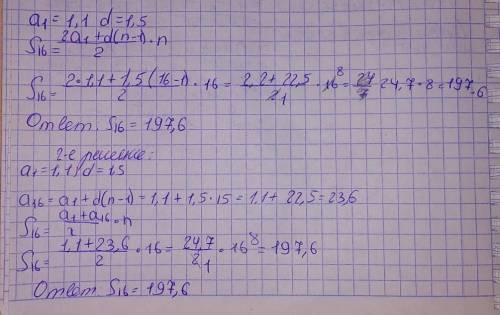 a₁ = 1,1 d = 1,5
S₁₆ = (2a₁ + d(n-1))/2 · n
S₁₆ = (2·1,1 + 1,5(16-1))/2 · 16 = (2,2 + 22,5)/2 1 · 16 8 = 24,7 · 8 = 197,6
Ответ. S₁₆ = 197,6
2-е решение:
a₁ = 1,1 d = 1,5
a₁₆ = a₁ + d(n-1) = 1,1 + 1,5·15 = 1,1 + 22,5 = 23,6
S₁₆ = (a₁ + a₁₆)/2 · n
S₁₆ = (1,1 + 23,6)/2 · 16 = 24,7/2 1 · 16 8 = 197,6
Ответ S₁₆ = 197,6